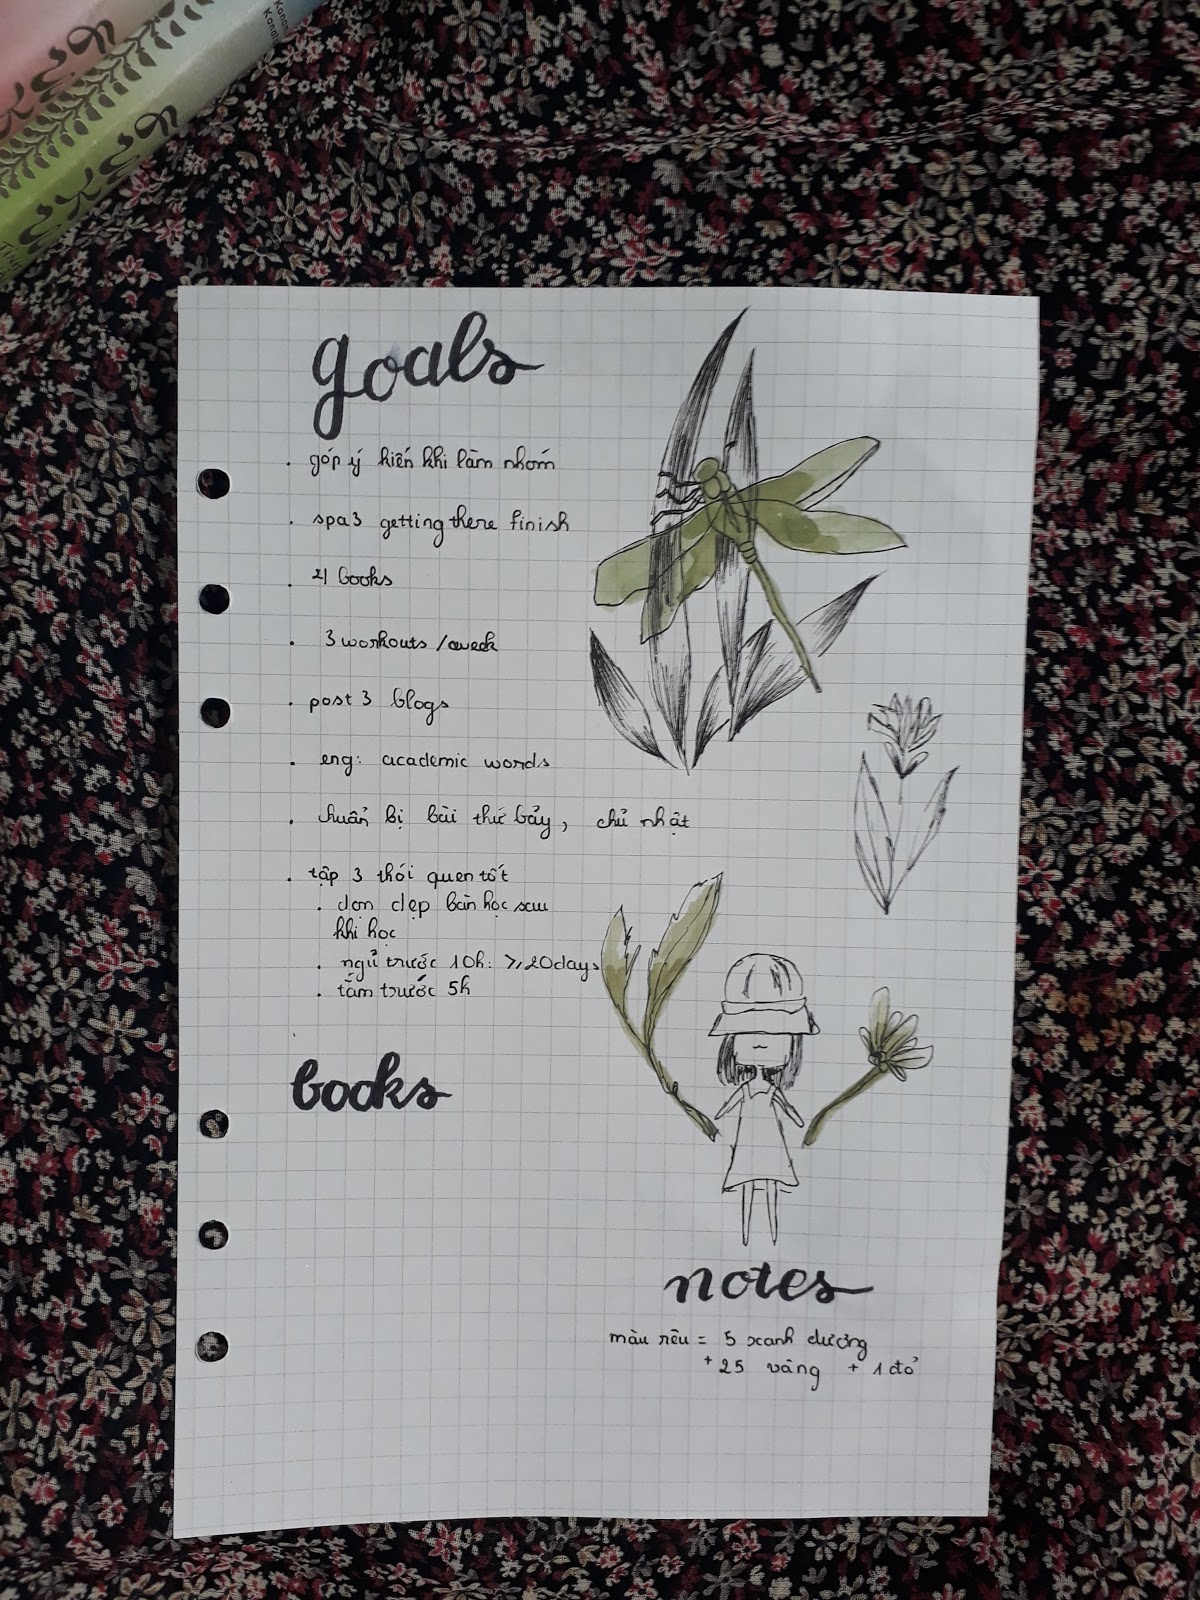 goals
. góp ý kiến khi làm nhóm
. spa3 getting there finish
. 21 books
. 3 workouts / week
. post 3 blogs
. eng: academic words
. chuẩn bị bài thứ bảy, chủ nhật
. tập 3 thói quen tốt
. dọn dẹp bàn học sau
khi học
. ngủ trước 10h: ≥20days
. tắm trước 5h
books
notes
màu rêu = 5 xanh dương
+ 25 vàng + 1 đỏ